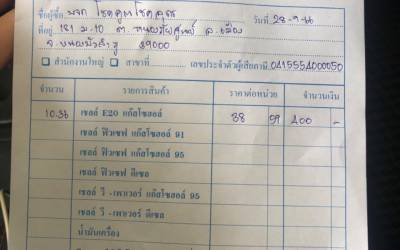 ชื่อผู้ซื้อ หจก. โชคคูณโชคคูณ วันที่ 28-9-66
ที่อยู่ 181 ม.10 ต. หนองภัยศูนย์ อ. เมือง
จ. หนองบัวลำภู 39000
สำนักงานใหญ่ สาขาที่ เลขประจำตัวผู้เสียภาษี 0415554000050
จำนวน รายการสินค้า ราคาต่อหน่วย จำนวนเงิน
10.36 เชลล์ E20 แก๊สโซฮอล์ 38 59 400 -
เชลล์ ฟิวเซฟ แก๊สโซฮอล์ 91
เชลล์ ฟิวเซฟ แก๊สโซฮอล์ 95
เชลล์ ฟิวเซฟ ดีเซล
เชลล์ วี -เพาเวอร์ แก๊สโซฮอล์ 95
เชลล์ วี -เพาเวอร์ ดีเซล
น้ำมันเครื่อง